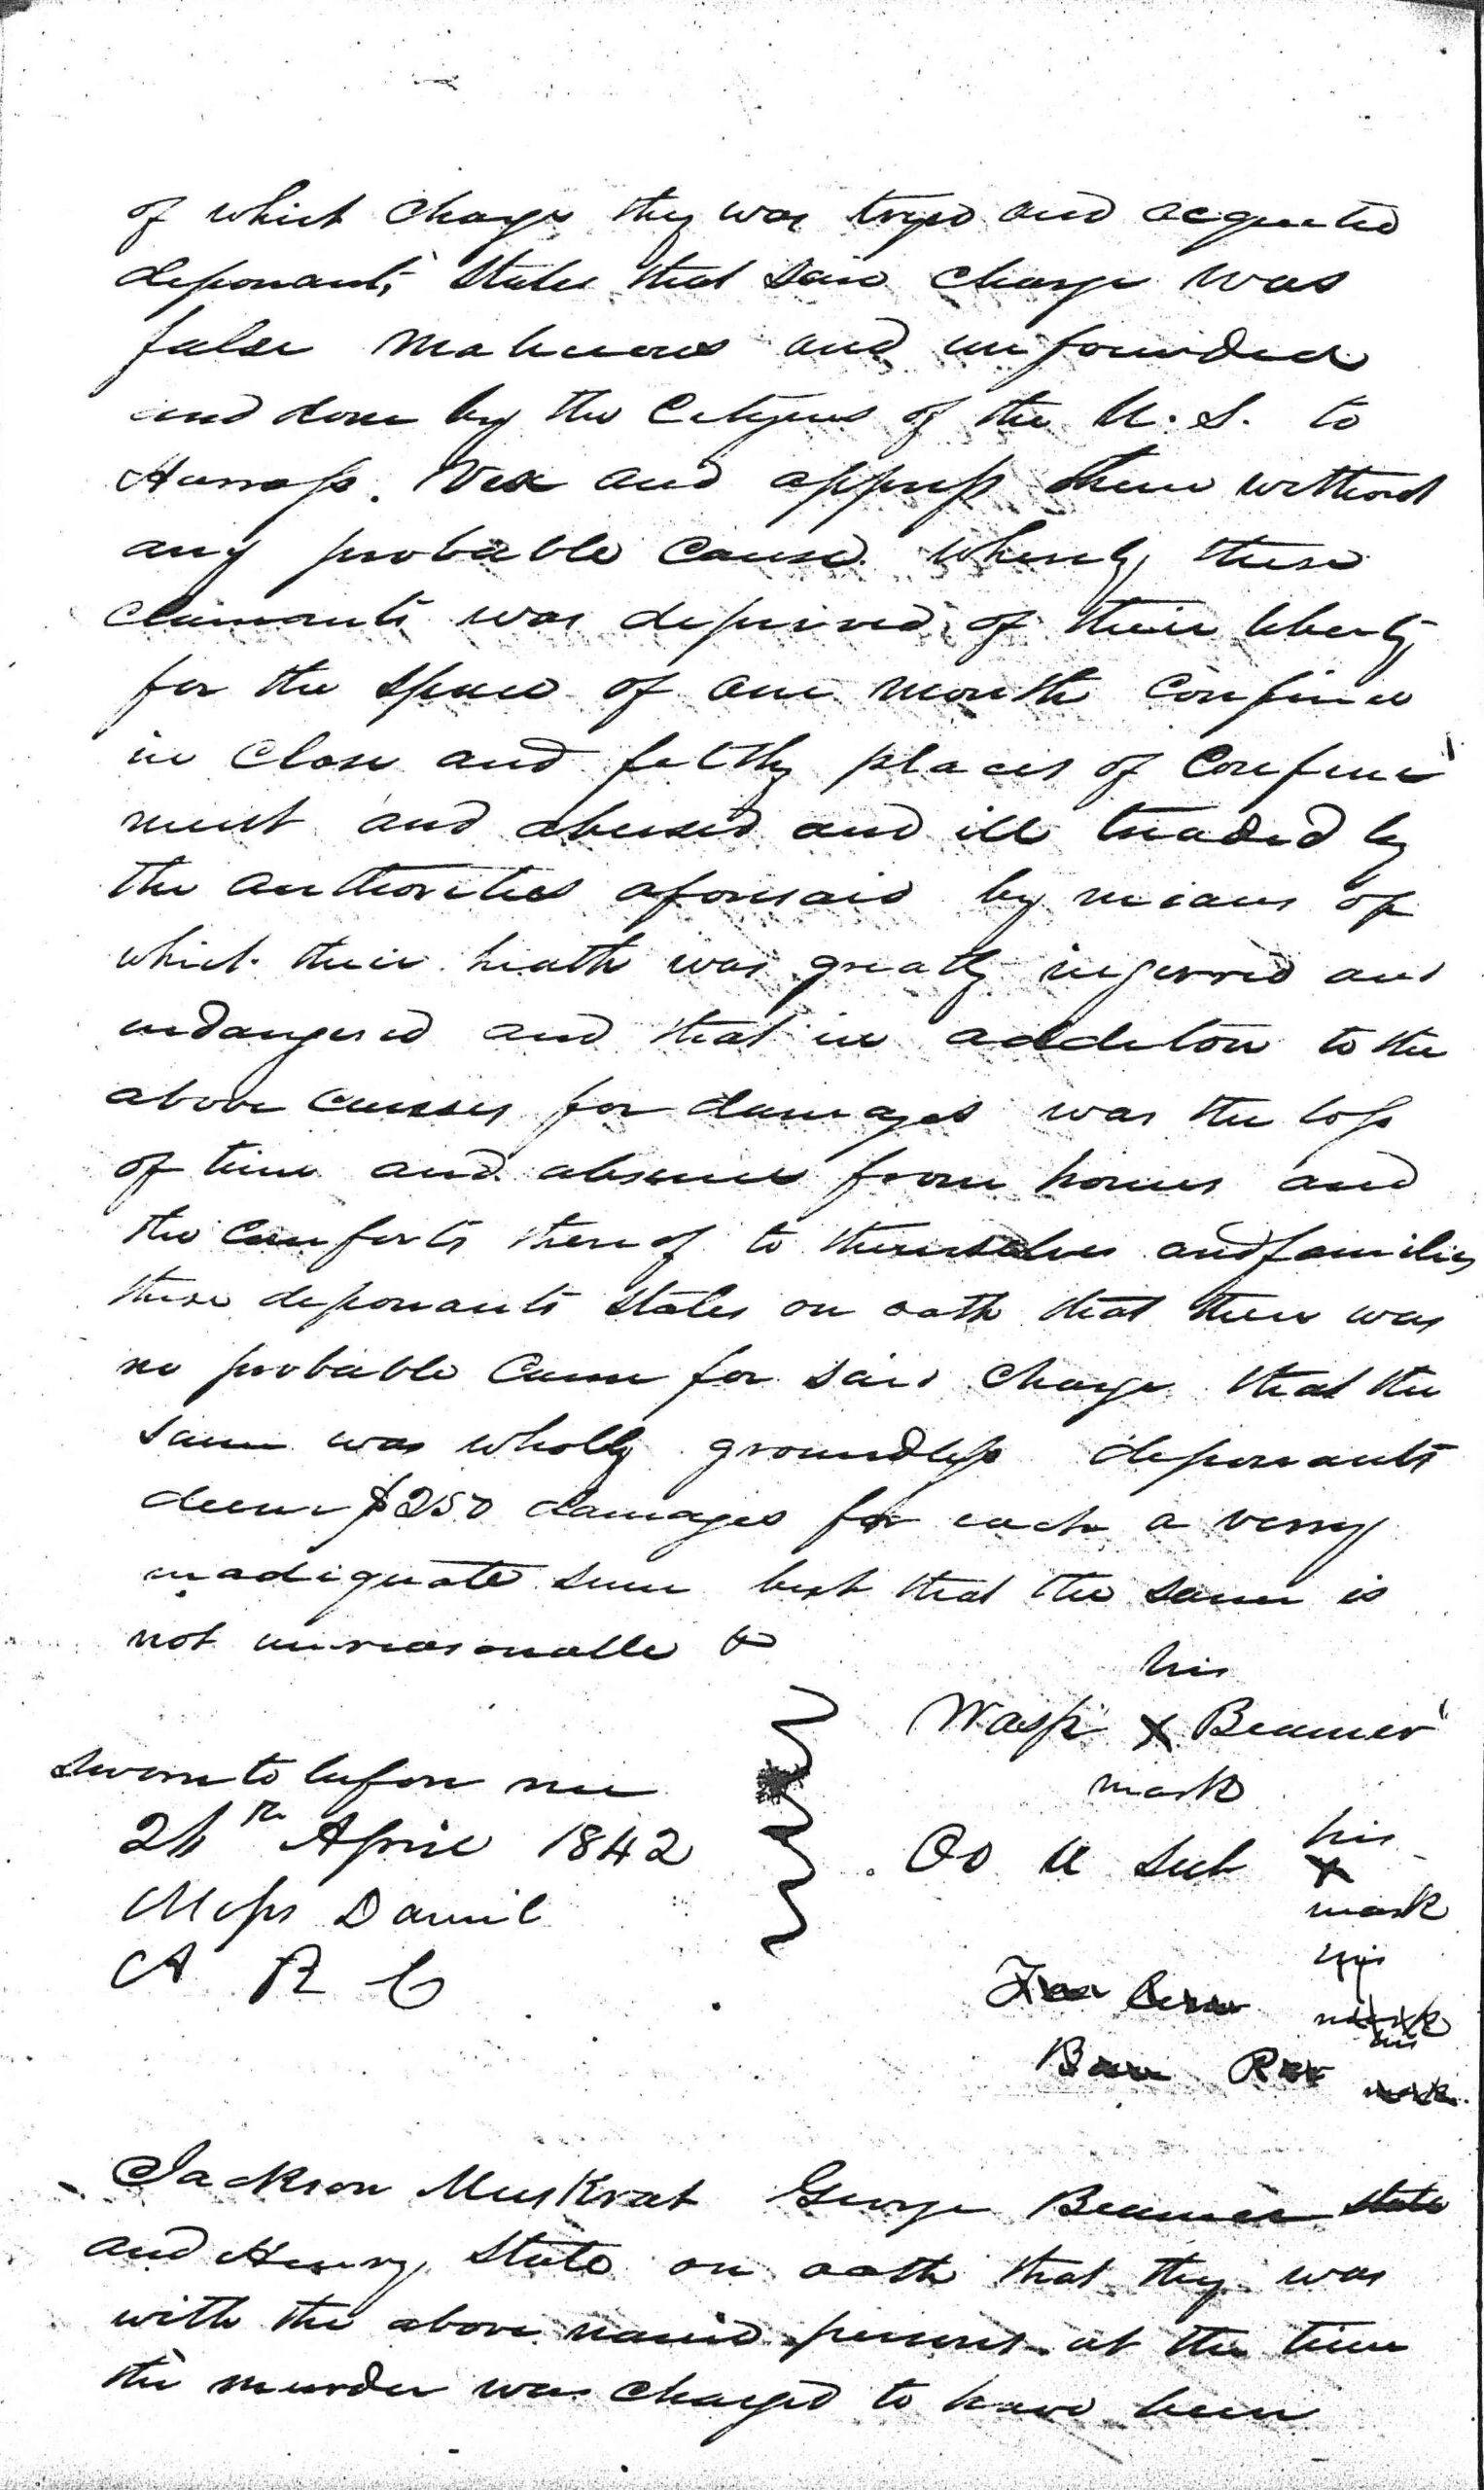 of which charge they was tryed and acquited
deponants states that said charge was
false malicious and unfounded
and done by the Citizens of the U. S. to
Harrass. Vex and oppress them without
any probable cause whereby these
claimants was deprived of their liberty
for the space of one month confined
in close and filthy places of Confine
ment and abused and ill treaded by
the authorities aforesaid by means of
which their heath was greatly injurred and
endangered and that in additon to the
above causes for damages was the loss
of time and absence from homes and
the comforts thereof to themselves and families
these deponants states on oath that there was
no probable cause for said charge that the
same was wholly groundless deponants
deem $250 damages for each a verry
inadiquate sum but that the same is
not unreasonable
his
Wasp X Beamer
mark
sworn to before me
April 1842
Moss Daniel
A R C
his
Oo U Sut X
mark
his
mark
his
mark
Jackson Muskrat George Beamer state
and Henry state on oath that they was
with the above named persons at the time
the murder was charged to have been